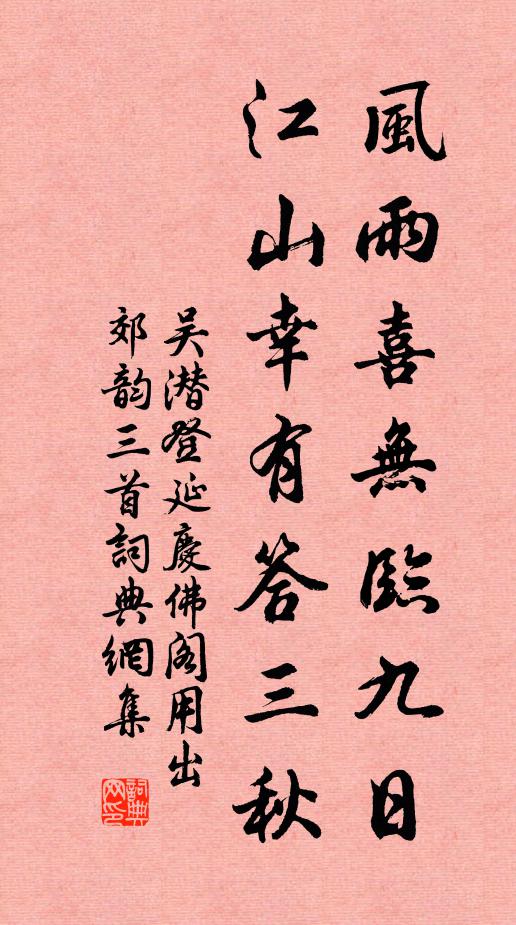 風雨喜無臨九日
江山幸有答三秋
吴潛登延慶佛阁用出
郊韵三首詞典網集
詞典网印